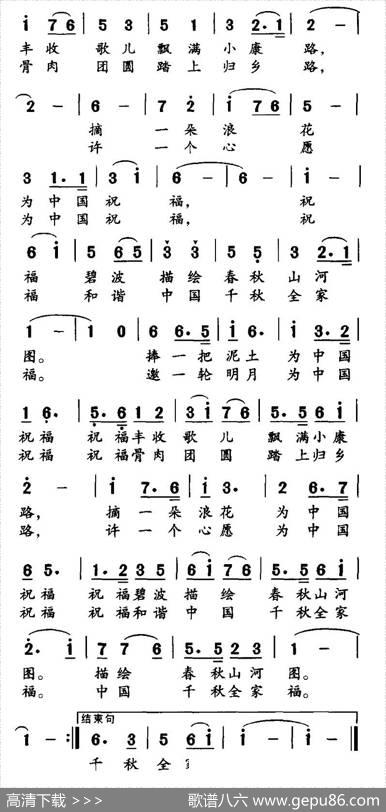 i 7 6 | 5 3 | 5 1 | 3 2·1 | 2 - |
丰收 歌儿 飘满 小康 路，
骨肉 团圆 踏上 归乡 路，
2 - | 6 - | 7 2 | i 7 6 | 5 - |
摘 一朵 浪 花
许 一个 心 愿
3 1·1 | 3 i | 6 - | 6 - | i - |
为中国 祝 福， 祝
为中国 祝 福， 祝
6 i | 5 6 5 | 3 3 | 5 5 | 3 2·1 |
福 碧波 描绘 春秋 山河
福 和谐 中国 千秋 全家
1 - | 1 0 | 6 6·5 | i 6· | i 3·2 |
图。 捧一把 泥土 为中国
福。 邀一轮 明月 为中国
1 6· | 5·6 1 2 | 3 i 7 6 | 5·5 6 i |
祝福 祝福丰收 歌儿 飘满小康
祝福 祝福骨肉 团圆 踏上归乡
2 - | i 7·6 | i 3· | 2 6·7 |
路， 摘一朵 浪花 为中国
路， 许一个 心愿 为中国
6 5· | 1·2 3 5 | 6 i 7 6 | 5·5 6 i |
祝福 祝福碧波 描绘 春秋山河
祝福 祝福和谐 中国 千秋全家
2· i | 7 7 6 | 5·5 2 3 | 1 - |
图。 描绘 春秋山河 图。
福。 中国 千秋全家 福。
结束句
1 - :‖ 6· 3 | 5 6 i | i - | i - ‖
千秋全
高清下载 >>> 歌谱八六 www.gepu86.com